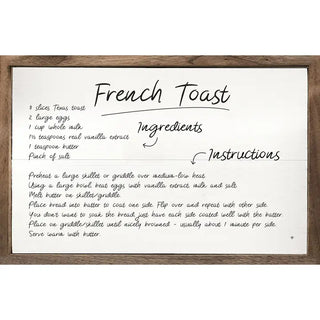 French Toast
slices Texas toast
2 large eggs
1 cup whole milk
teaspoons real vanilla extract
1 teaspoon butter
Pinch of salt
Ingredients
Instructions
Preheat a large skillet or griddle over medium-low heat.
Using a large bowl beat eggs with vanilla extract milk and salt.
Melt butter on skillet/griddle.
Place bread into batter to coat one side. Flip over and repeat with other side.
You don't want to soak the bread, just have each side coated well with the batter.
Place on griddle/skillet until nicely browned - usually about 1 minute per side.
Serve warm with butter.